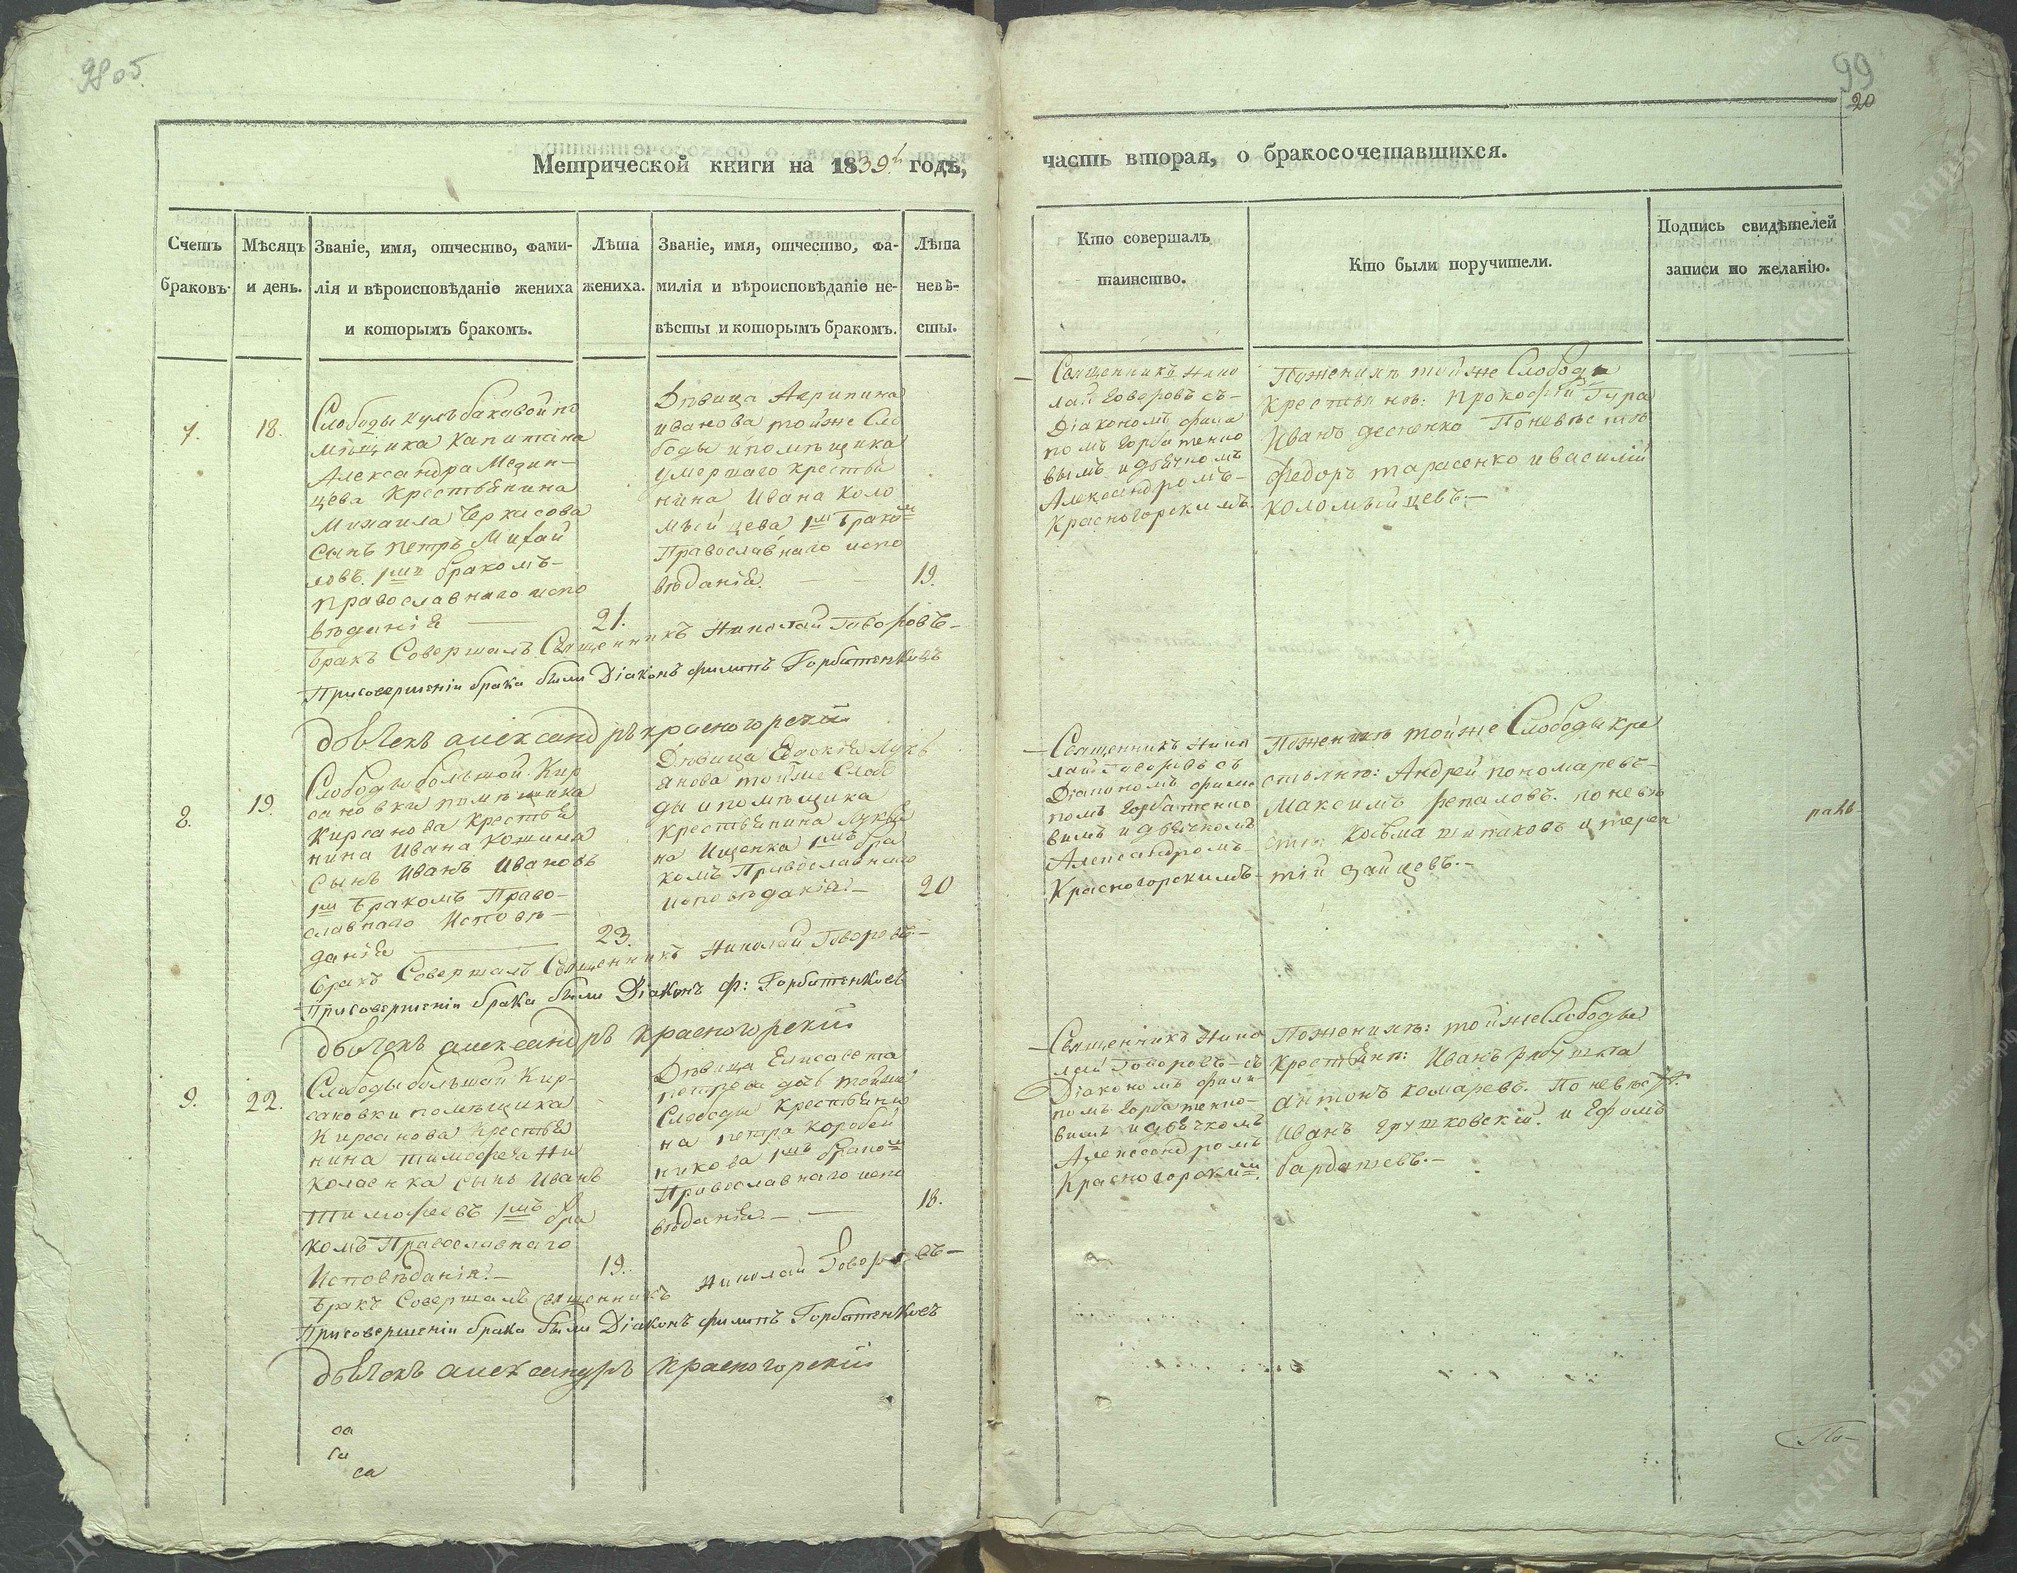 9805
99
20
Метрической книги на 1839й годъ,
часть вторая, о бракосочетавшихся.
Счетъ
браковъ.
Мѣсяцъ
и день.
Званіе, имя, отчество, фами-
лія и вѣроисповѣданіе жениха
и которымъ бракомъ.
Лѣта
жениха.
Званіе, имя, отчество, фа-
милія и вѣроисповѣданіе не-
вѣсты и которымъ бракомъ.
Лѣта
невѣ-
сты.
Кто совершалъ
таинство.
Кто были поручители.
Подпись свидѣтелей
записи по желанію.
7.
18.
Слободы Кульбаковой по
мѣщика Капитана
Александра Медин-
цева Крестьянина
Михаила Черкасова
сынъ Петръ Михай
ловъ 1мъ бракомъ
православнаго испо
вѣданія
21.
Дѣвица Агрипина
Иванова той же Сло
боды и помѣщика
умершаго крестья
нина Ивана Коло
мыйцева 1мъ бракомъ
Православнаго испо
вѣданія.
19.
Священникъ Нико
лай Говоровъ съ
Діакономъ Фили
помъ Горбатенко
вымъ и дьячкомъ
Александромъ
Красногорскимъ.
По женихѣ той же Слободы
крестьянѣ: Прокофій Гура
Иванъ Десненко По невѣстѣ
Федоръ Тарасенко и Василій
Коломыйцевъ.
Бракъ Совершалъ Священникъ Николай Говоровъ
При совершеніи брака были Діаконъ Филипъ Горбатенковъ
дьячекъ александръ красногорскій
8.
19.
Слободы большой Кир
сановки помѣщика
Кирсанова Крестья
нина Ивана Кошина
Сынъ Иванъ Ивановъ
1мъ бракомъ Право-
славнаго Исповѣ-
данія
23.
Дѣвица Евдокія Лукь
янова той же Слобо
ды и помѣщика
крестьянина Лукья
на Ищенка 1мъ бра
комъ Православнаго
исповѣданія
20
Священникъ Нико
лай Говоровъ съ
Діакономъ Фили
помъ Горбатенко
вымъ и дьячкомъ
Александромъ
Красногорскимъ.
По женихѣ той же Слободы кре
стьянѣ: Андрей Пономаревъ
Максимъ Репаловъ. по невѣ
стѣ: Козьма Шпаковъ и Терен
тій Зайцевъ.
Бракъ Совершалъ Священникъ Николай Говоровъ
При совершеніи брака были Діаконъ Ф: Горбатенковъ
дьячекъ александръ красногорскій
9.
22.
Слободы большой Кир-
сановки помѣщика
Кирсанова Крестья
нина Тимофея Ни
колаенка сынъ Иванъ
Тимофеевъ 1мъ бра
комъ Православнаго
Исповѣданія.
19.
Дѣвица Елисавета
Петрова дочь той же
Слободы Крестьяни
на Петра Коробей
никова 1мъ бракомъ
Православнаго испо
вѣданія.
18.
Священникъ Нико
лай Говоровъ съ
Діакономъ Фили-
помъ Горбатенко-
вымъ и дьячкомъ
Александромъ
Красногорскимъ.
По женихѣ: той же Слободы
крестьяне: Иванъ Рябушка
Антонъ Комаревъ. По невѣстѣ.
Иванъ Грушковскій. и Ефимъ
Бардашевъ.
Бракъ Совершалъ священникъ Николай Говоровъ
При совершеніи брака были Діаконъ Филипъ Горбатенковъ
дьячекъ александръ красногорскій
По-